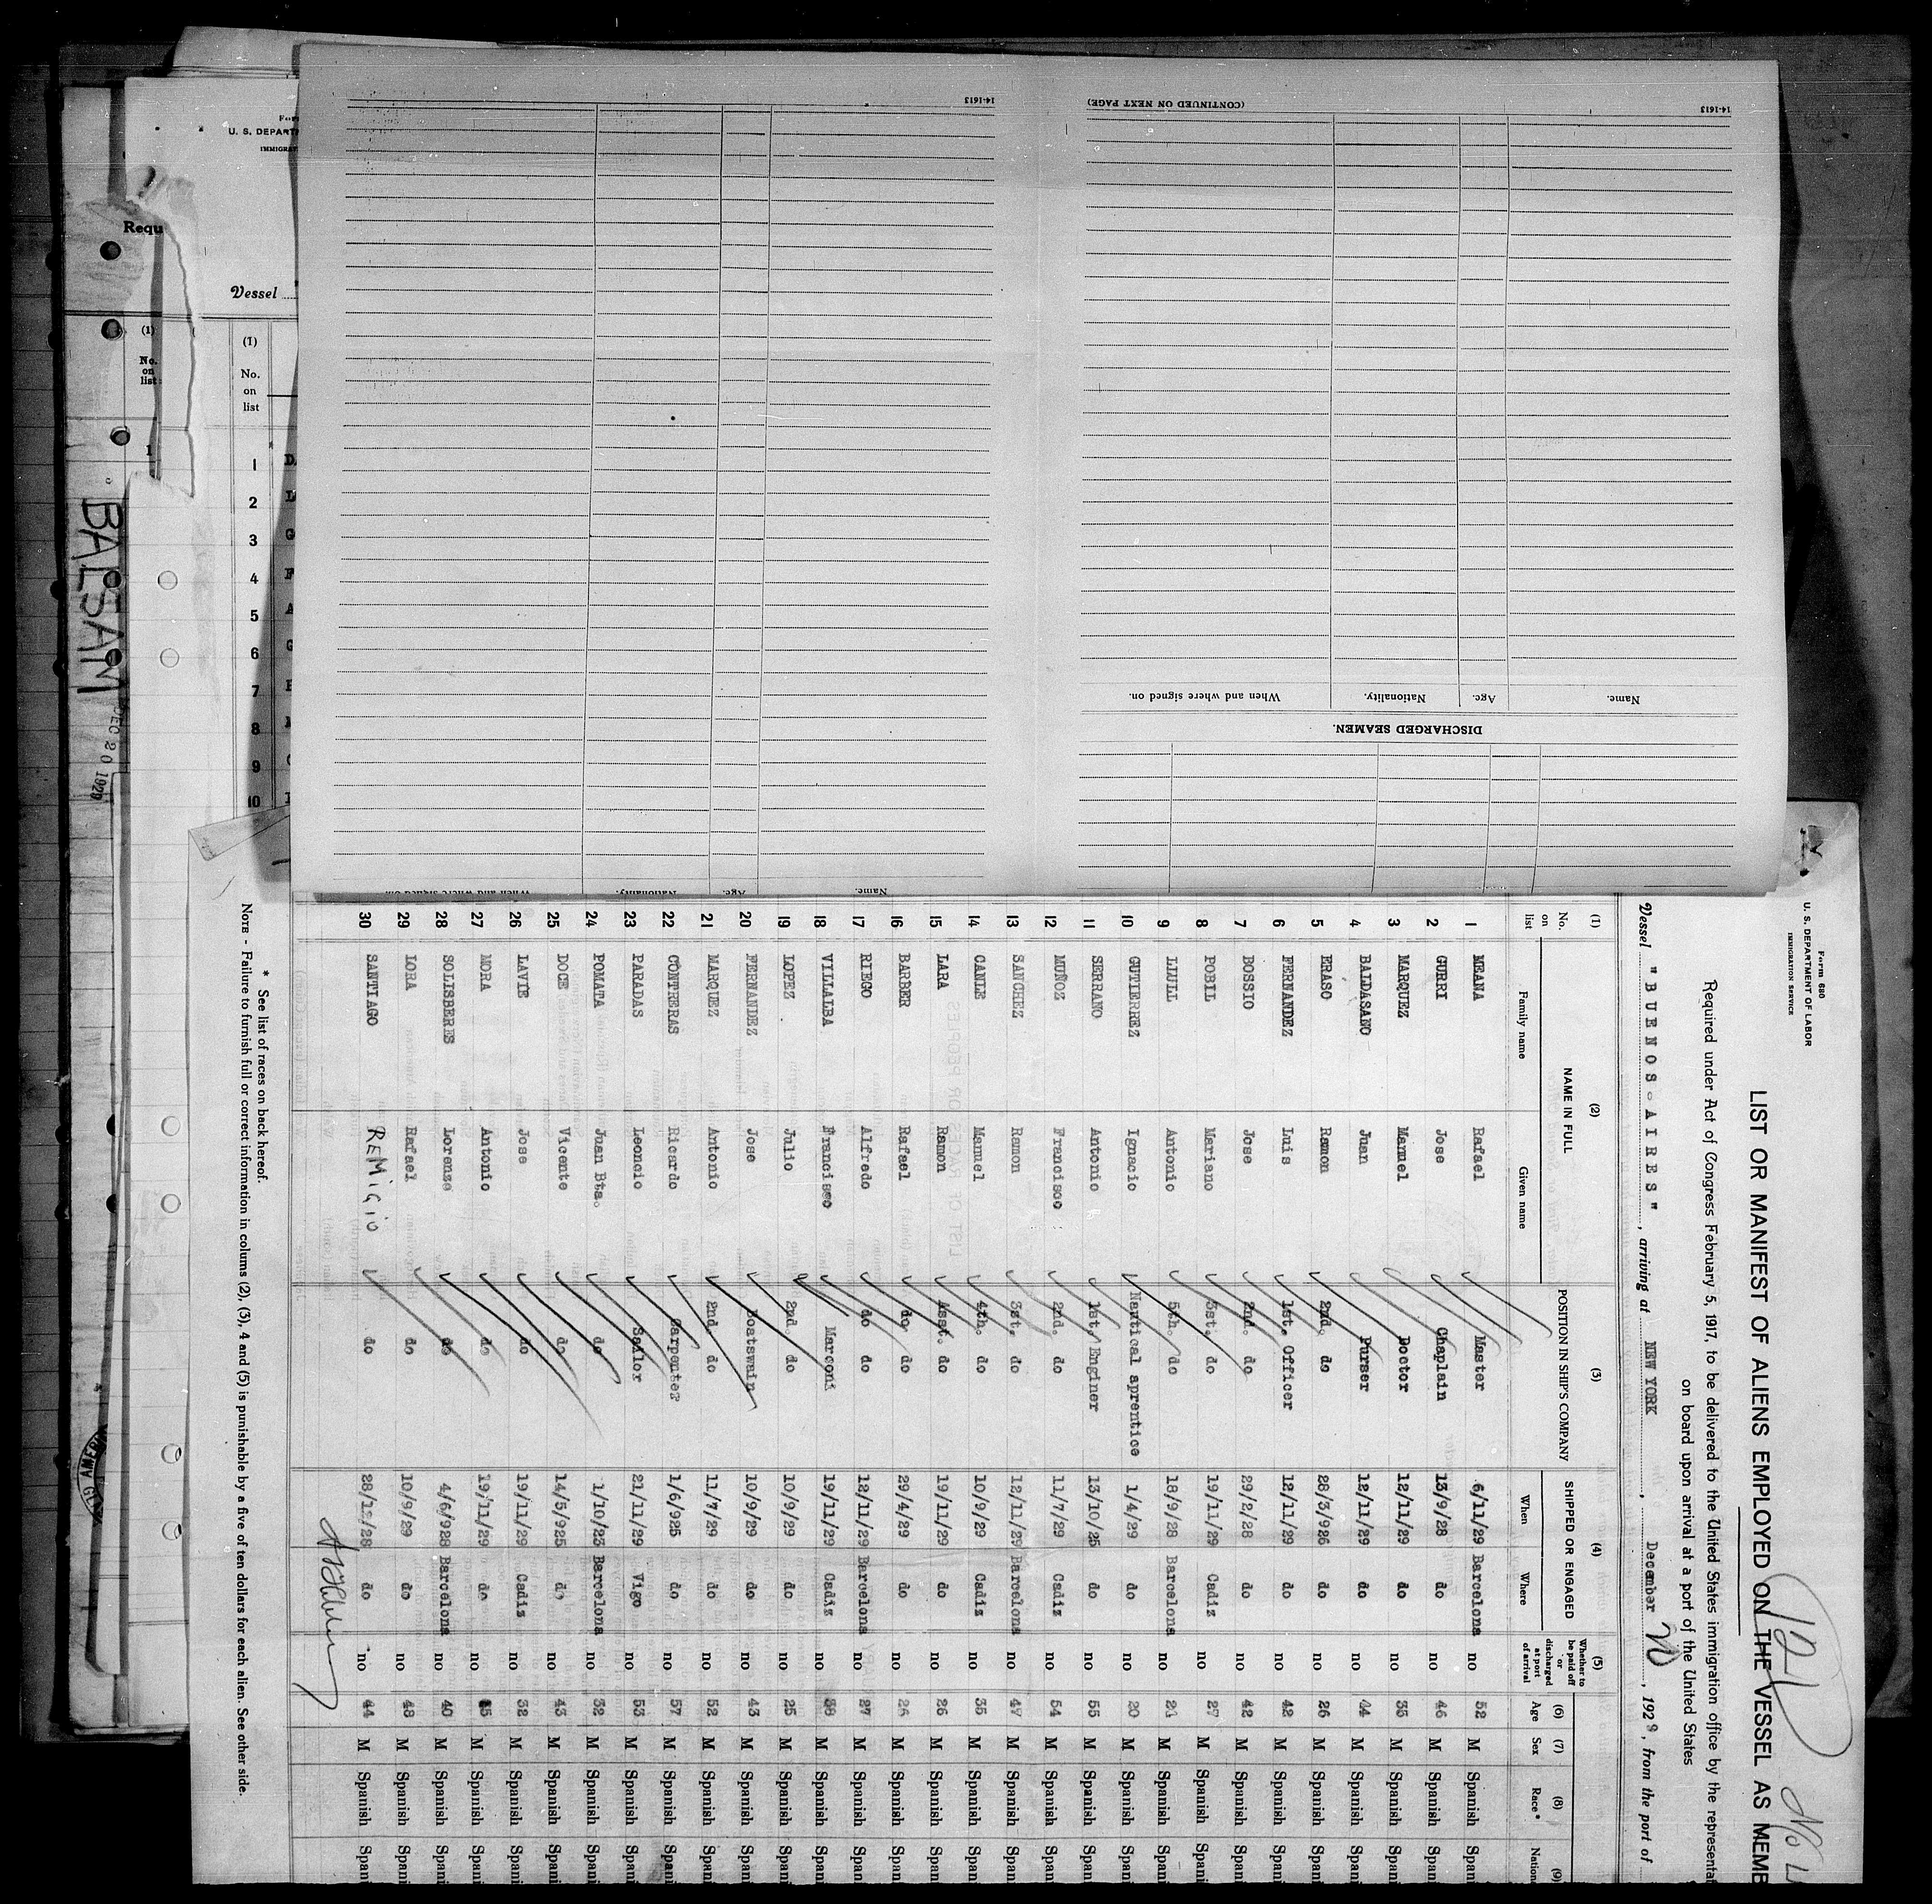 Form
U. S. DEPARTM
IMMIGRAT
Requ
Vessel
(1)
No.
on
list
(1)
No.
on
list
1
1
2
3
4
5
6
7
8
9
10
BALSAM
DEC 20 1929
14-1613
(CONTINUED ON NEXT PAGE)
14-1613
Name.
Age.
Nationality.
When and where signed on.
DISCHARGED SEAMEN.
Name.
Age.
Nationality.
When and where signed on.
Form 680
U. S. DEPARTMENT OF LABOR
IMMIGRATION SERVICE
121
LIST OR MANIFEST OF ALIENS EMPLOYED ON THE VESSEL AS MEMB
Required under Act of Congress February 5, 1917, to be delivered to the United States immigration office by the representat
on board upon arrival at a port of the United States
Vessel "BUENOS-AIRES", arriving at NEW YORK, December, 1929, from the port of
(1) (2) (3) (4) (5) (6) (7) (8) (9)
No. on list NAME IN FULL POSITION IN SHIP'S COMPANY SHIPPED OR ENGAGED Whether to be paid off or discharged at port of arrival Age Sex Race* Nation
Family name Given name When Where
1 MEANA Rafael Master 6/11/29 Barcelona no 52 M Spanish Spani
2 GURRI Jose Chaplain 13/9/28 do no 46 M Spanish Spani
3 MARQUEZ Manuel Doctor 12/11/29 do no 35 M Spanish Spani
4 BALDASANO Juan Purser 12/11/29 do no 44 M Spanish Spani
5 ERASO Ramon 2nd. do 28/3/926 do no 26 M Spanish Spani
6 FERNANDEZ Luis 1st. Officer 12/11/29 do no 42 M Spanish Spani
7 BOSSIO Jose 2nd. do 29/2/28 do no 42 M Spanish Spani
8 POBIL Mariano 3st. do 19/11/29 Cadiz no 27 M Spanish Spani
9 LLULL Antonio 5th. do 18/9/28 Barcelona no M Spanish Spani
10 GUTIERREZ Ignacio Nautical aprentice 1/4/29 do no 20 M Spanish Spani
11 SERRANO Antonio 1st. Enginer 13/10/25 do no 55 M Spanish Spani
12 MUÑOZ Francisco 2nd. do 11/7/29 Cadiz no 54 M Spanish Spani
13 SANCHEZ Ramon 3st. do 12/11/29 Barcelona no 47 M Spanish Spani
14 CANLE Manuel 4th. do 10/9/29 Cadiz no 35 M Spanish Spani
15 LARA Ramon Asst. do 19/11/29 do no 26 M Spanish Spani
16 BARBER Rafael do do 29/4/29 do no M Spanish Spani
17 RIEGO Alfredo do do 12/11/29 Barcelona no 27 M Spanish Spani
18 VILLALBA Francisco Marconi 19/11/29 Cadiz no 38 M Spanish Spani
19 LOPEZ Julio 2nd. do 10/9/29 do no 25 M Spanish Spani
20 FERNANDEZ Jose Boatswain 10/9/29 do no 43 M Spanish Spani
21 MARQUEZ Antonio 2nd. do 11/7/29 do no 52 M Spanish Spani
22 CONTRERAS Ricardo Carpenter 1/6/925 do no 57 M Spanish Spani
23 PARADAS Leoncio Sailor 21/11/29 Vigo no 53 M Spanish Spani
24 POMATA Juan Bta. do 1/10/23 Barcelona no 32 M Spanish Spani
25 DOCE Vicente do 14/5/925 do no 43 M Spanish Spani
26 LAVIE Jose do 19/11/29 Cadiz no 32 M Spanish Spani
27 MORA Antonio do 19/11/29 do no M Spanish Spani
28 SOLISBERES Lorenzo do 4/6/928 Barcelona no 40 M Spanish Spani
29 LORA Rafael do 10/9/29 do no 48 M Spanish Spani
30 SANTIAGO REMIGIO do 28/12/28 do no 44 M Spanish Spani
* See list of races on back hereof.
NOTE - Failure to furnish full or correct information in colums (2), (3), 4 and (5) is punishable by a five of ten dollars for each alien. See other side.